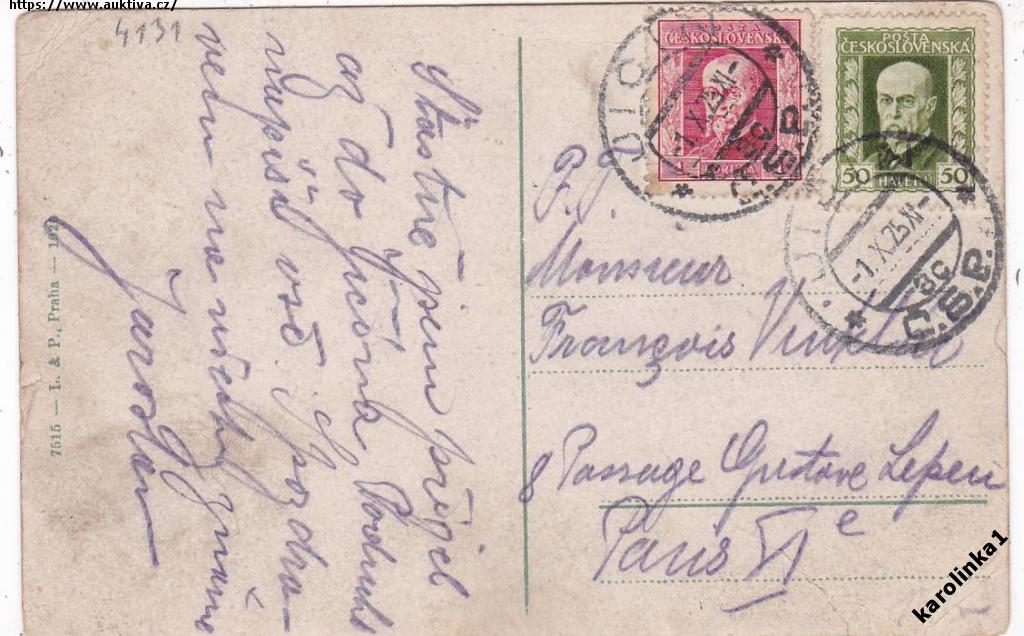 https://www.auktiva.cz/
4131
Šťastně jsem přijel
až do Jičína, Podruhé
napíši vše. S pozdra-
vem na všechny známé
Jaroslav
7515 — L. & P., Praha — 192
POŠTA
ČESKOSLOVENSKÁ
POŠTA
ČESKOSLOVENSKÁ
50 HALÉŘŮ 50
-1.X.25.XI-
Č.S.P.
-1.X.25.XI-
Č.S.P.
P. J.
Monsieur
François
8 Passage Gustave Lepeu
Paris XIe
karolinka1